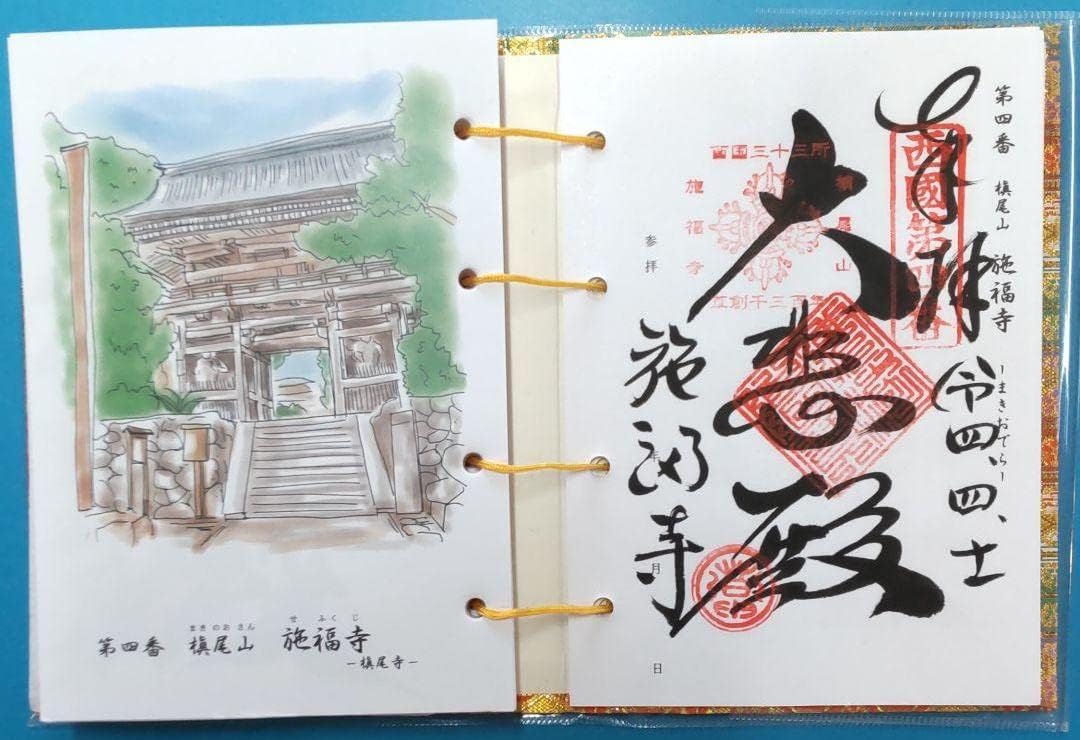 まきのおさん せ ふく じ
第四番 槇尾山 施福寺
－槇尾寺－
第四番 槇尾山 施福寺
－まきおでら－
奉拝 令四、四、十一
西國第四番
大悲殿
西国三十三所
槇尾山
施福寺
草創千三百年
参拝
月
日
施福寺